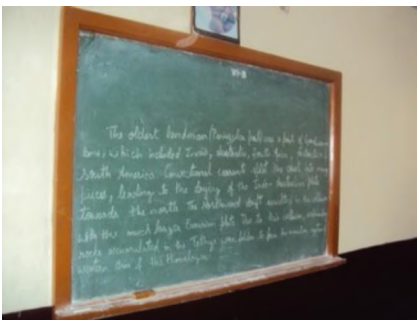 VI-B
The oldest landmass (Peninsular part) was a part of Gondwana
land, which included India, Australia, South Africa,
South America. Convectional currents split the crust into many
pieces, leading to the drifting of the Indo Australian plate
towards the north. The northward drift resulted in the collision
with the much larger Eurasian plate. Due to this collision,
rocks accumulated in the Tethys were folded to form the mountain system
western Asia & the Himalayas.